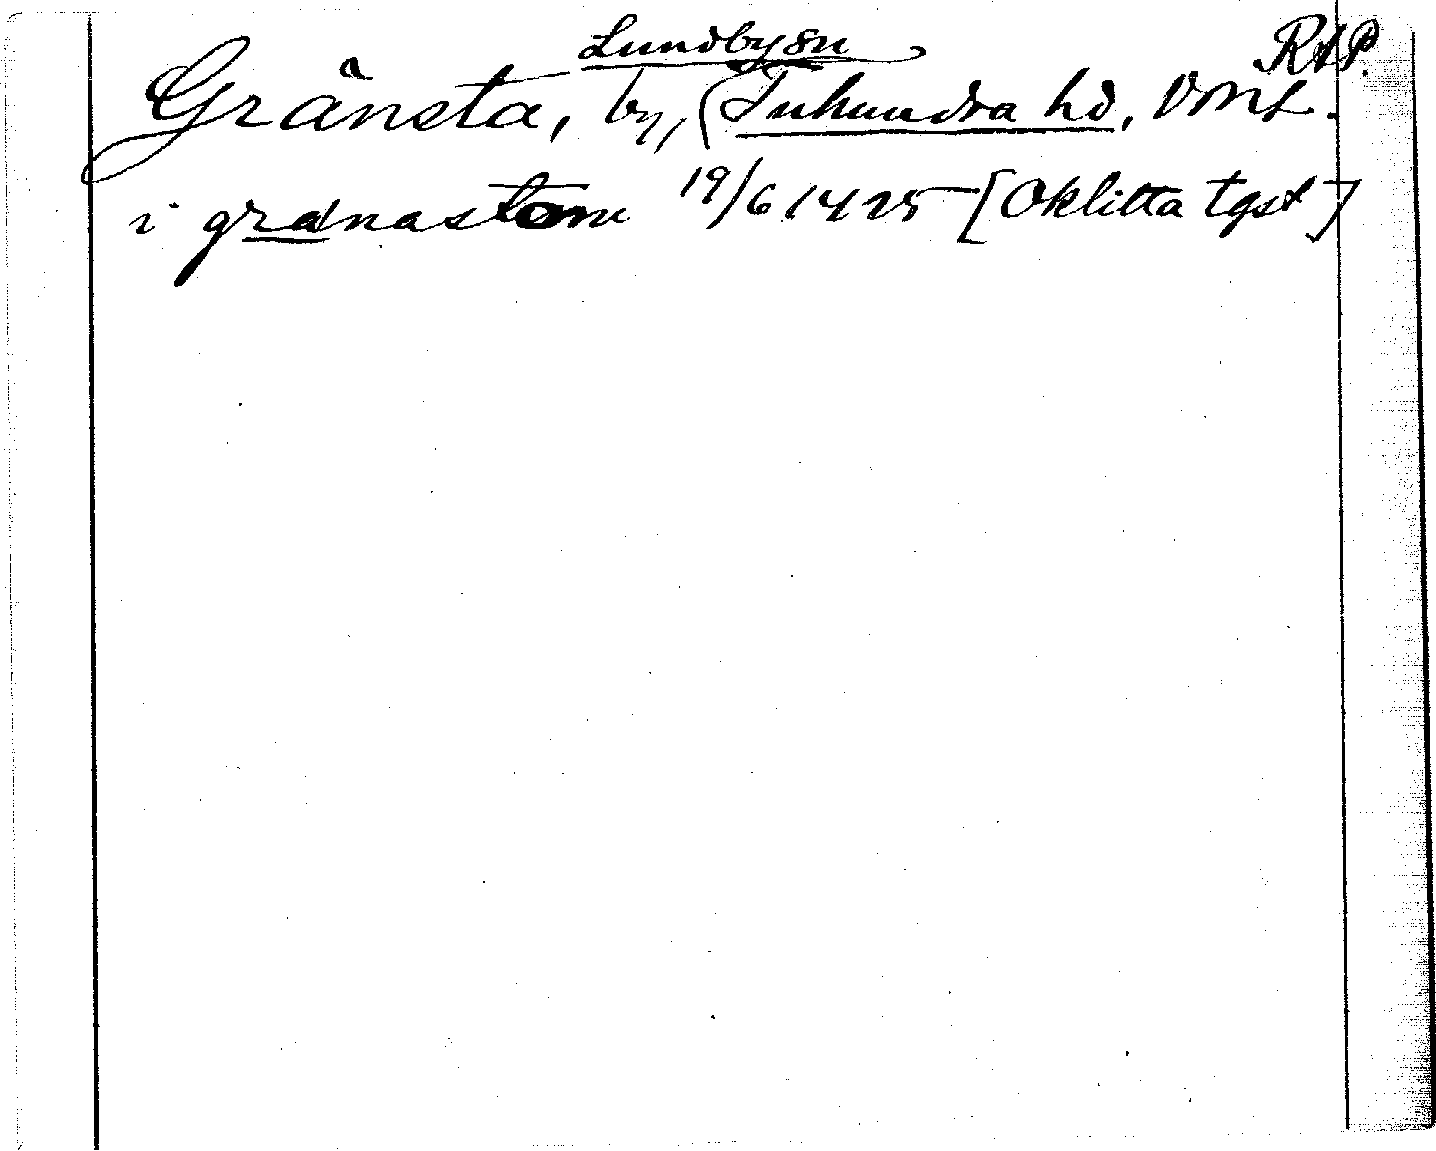 Lundby sn RAP.
Gränsta, by, (Tuhundra hd, Vml.
i granastom 19/6 1425 [Oklitta tgst]